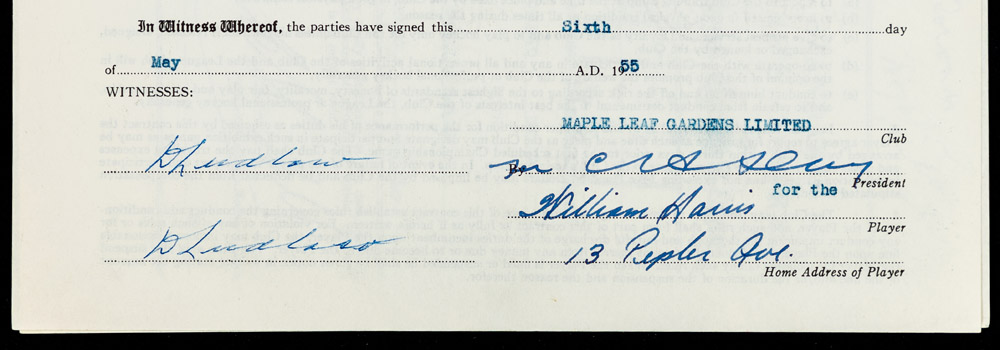 In Witness Whereof, the parties have signed this Sixth day
of May A.D. 1955
WITNESSES:
MAPLE LEAF GARDENS LIMITED
Club
D Ludlow
By
for the President
William Harris
Player
D Ludlow
13 Pepler Ave.
Home Address of Player